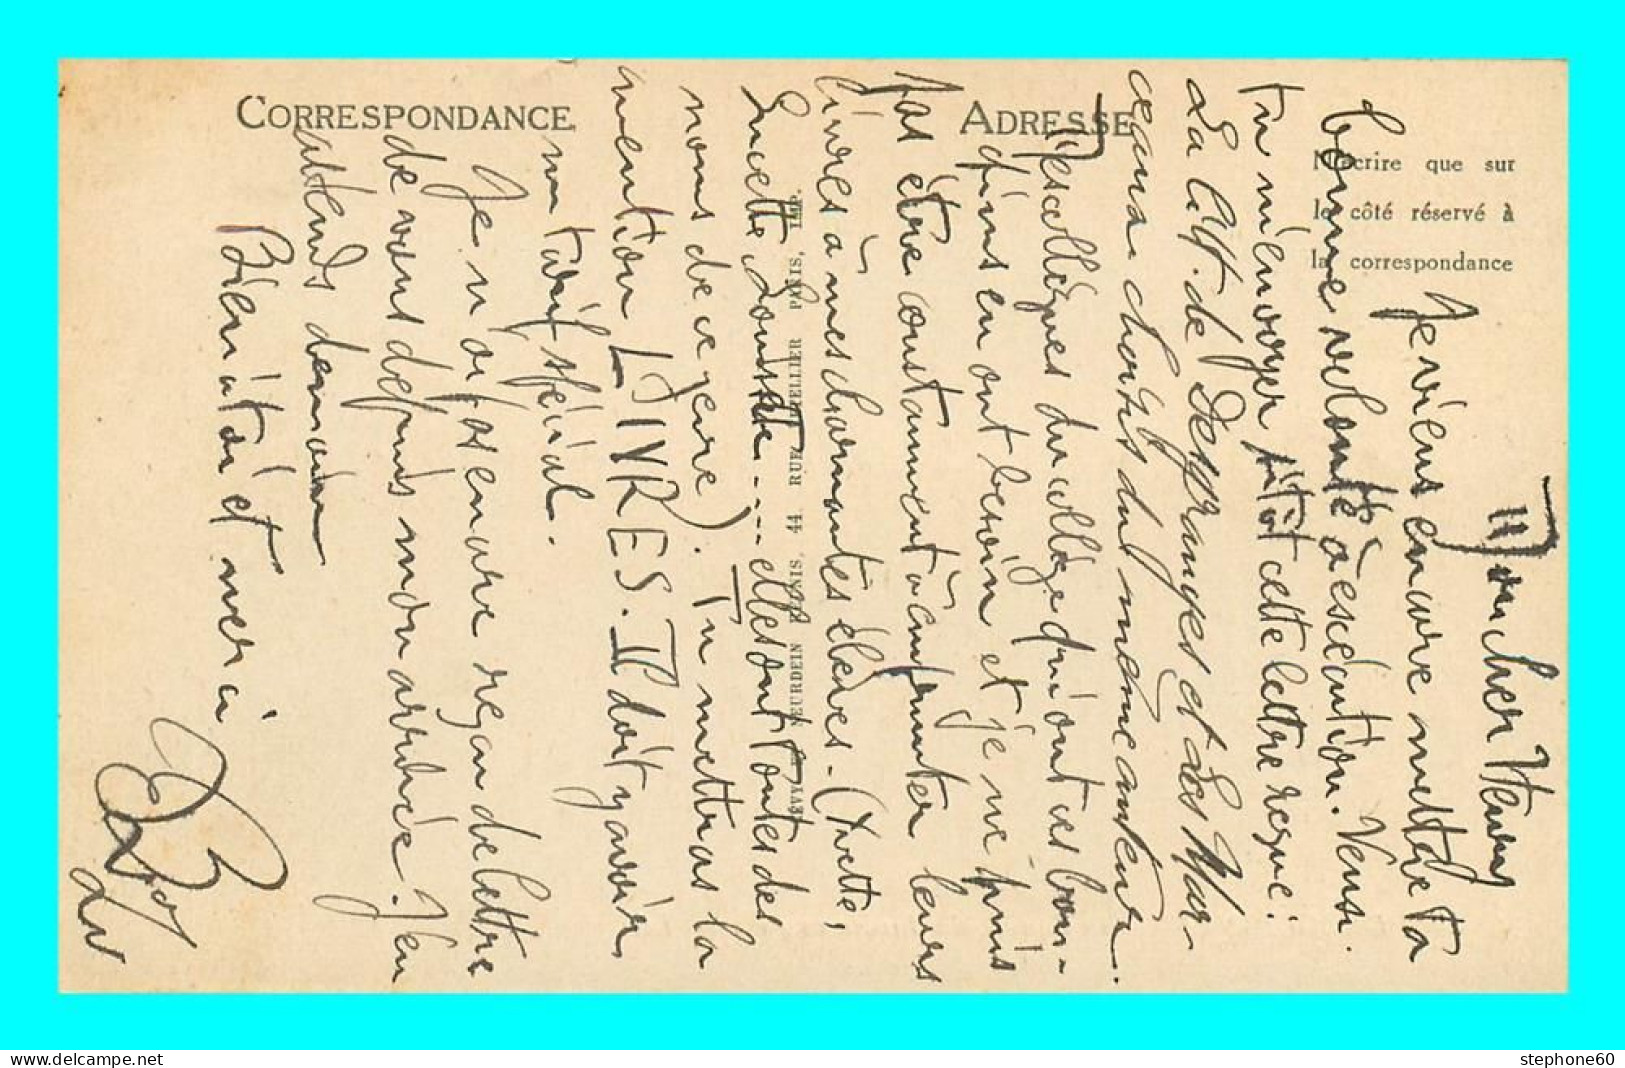 CORRESPONDANCE
ADRESSE
N'écrire que sur
le côté réservé à
la correspondance
Mon cher Henry
Je viens encore mettre ta
bonne volonté à exécution. Veux
tu m'envoyer sitôt cette lettre reçue:
La litt. de Desgranges et Les Mor-
ceaux choisis du même auteur.
J'ai escollègues du collège qui ont ces bou-
quins en ont besoin et je ne puis
pas être constamment à emprunter leurs
livres à mes charmantes élèves - (Yvette,
Lucette, Lousette .... elles ont toutes des
noms de ce genre). Tu mettras la
mention LIVRES. Il doit y avoir
un tarif spécial.
Je n'ai pas encore reçu de lettre
de vous depuis mon arrivée. J'en
attends demain
Bien à toi et merci
NEURDEIN PARIS, 44 RUE LETELLIER PARIS, IMP.
stephone60